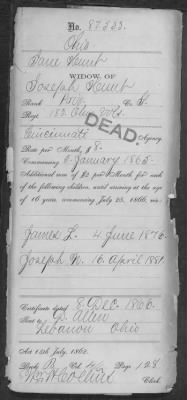 No. 87533.
Ohio
Jane Hunt
WIDOW OF
Joseph Hunt
Rank Priv. Co. G.
Regt. 152 Ohio Vols.
DEAD.
Cincinnati Agency
Rate per Month, $ 8.
Commencing 6 January 1865.
Additional sum of $2 per Month for each
of the following children, until arriving at the age
of 16 years, commencing July 25, 1866, viz:
James L. 4 June 1876.
Joseph N. 16 April 1881
Certificate dated 8 Dec. 1866.
Sent to Allen
Lebanon Ohio
Act 14th July, 1862.
Book B Vol. 4 Page 128
Clerk.